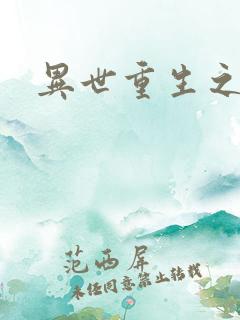 異世重生之
范西屏
未经同意禁止转载